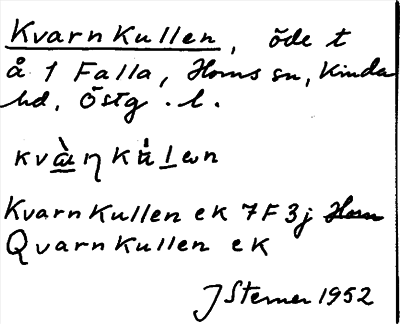 KvarnKullen, öde t
å 1 Falla, Horns sn, Kinda
hd, Östg. l.
kvàŋkúlən
KvarnKullen ek 7F3j Horn
QvarnKullen ek
J Sterner 1952